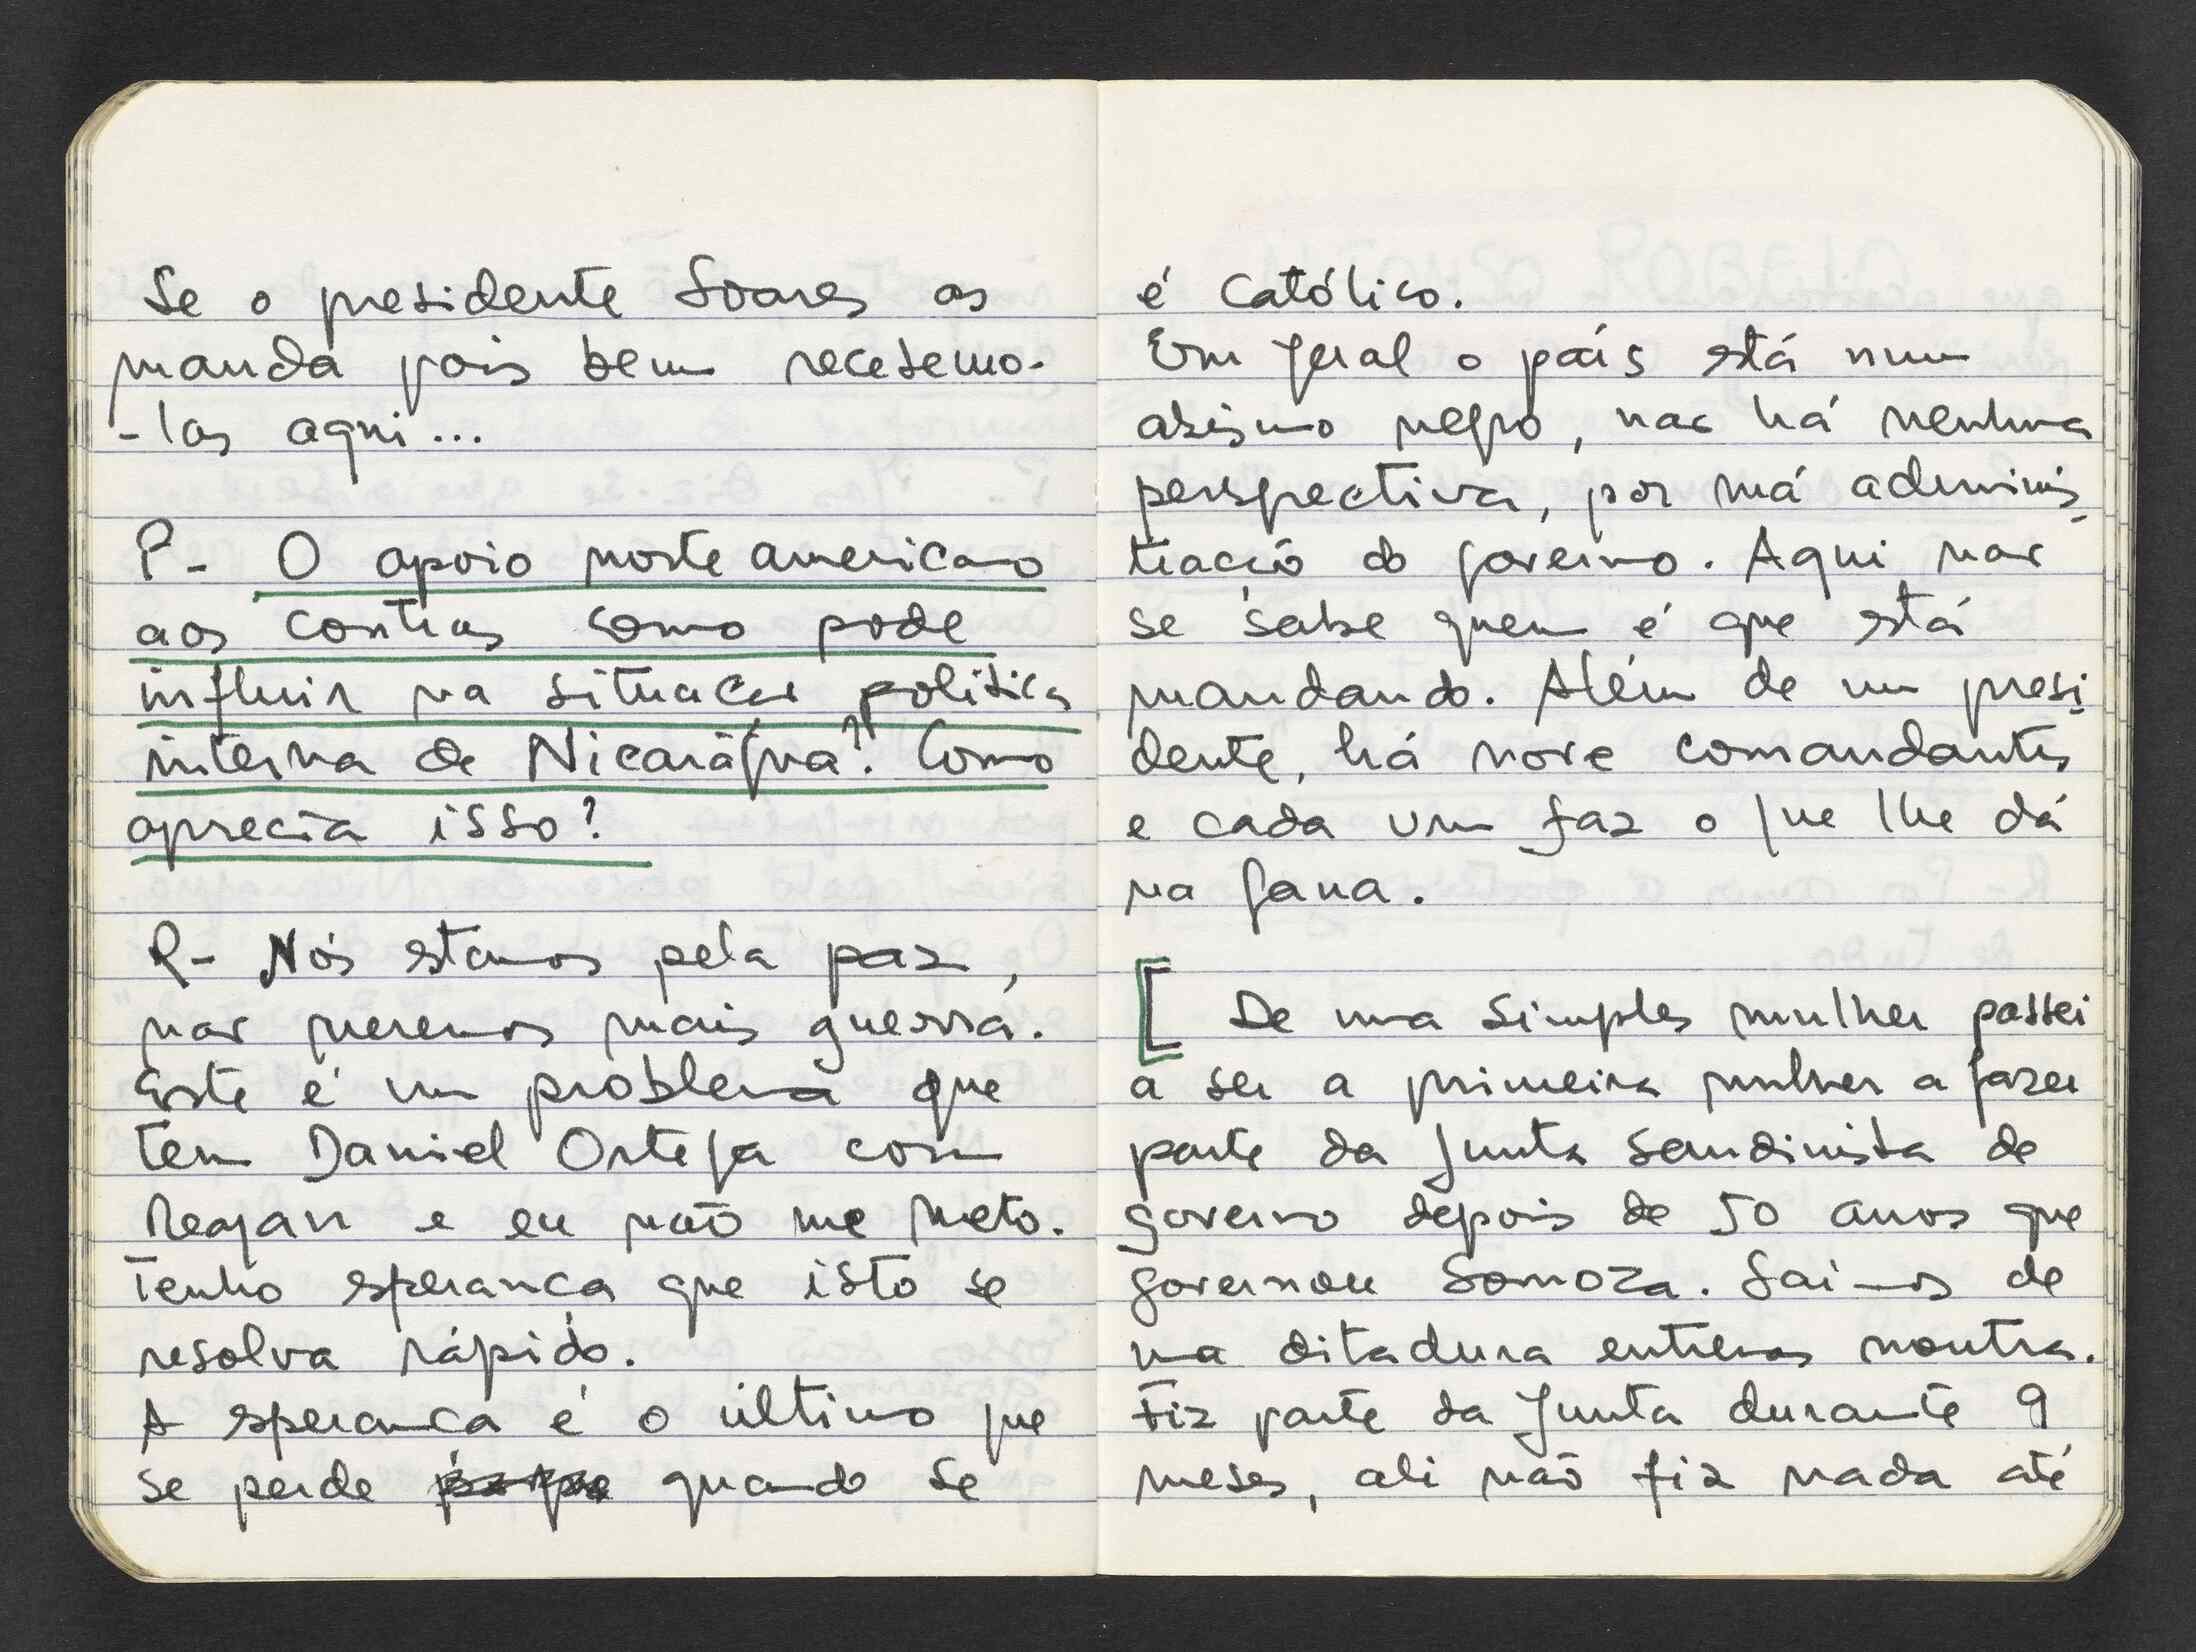 Se o presidente Soares as
manda pois bem recebemo-
-las aqui...
P- O apoio norte americano
aos contras como pode
influir na situação política
interna de Nicarágua? Como
aprecia isso?
R- Nós estamos pela paz,
nao queremos mais guerra.
Este é um problema que
tem Daniel Ortega com
Reagan e eu não me meto.
Tenho esperança que isto se
resolva rápido.
A esperança é o último que
se perde quando se
é católico.
Em geral o país está num
abismo negro, nao há nenhuma
perspectiva, por má adminis
tração do governo. Aqui nao
se sabe quem é que está
mandando. Além de um presi
dente, há nove comandantes
e cada um faz o que lhe dá
na gana.
[ De uma simples mulher passei
a ser a primeira mulher a fazer
parte da Junta Sandinista de
governo depois de 50 anos que
governou Somoza. Saimos de
uma ditadura entramos noutra.
Fiz parte da Junta durante 9
meses, ali não fiz nada até